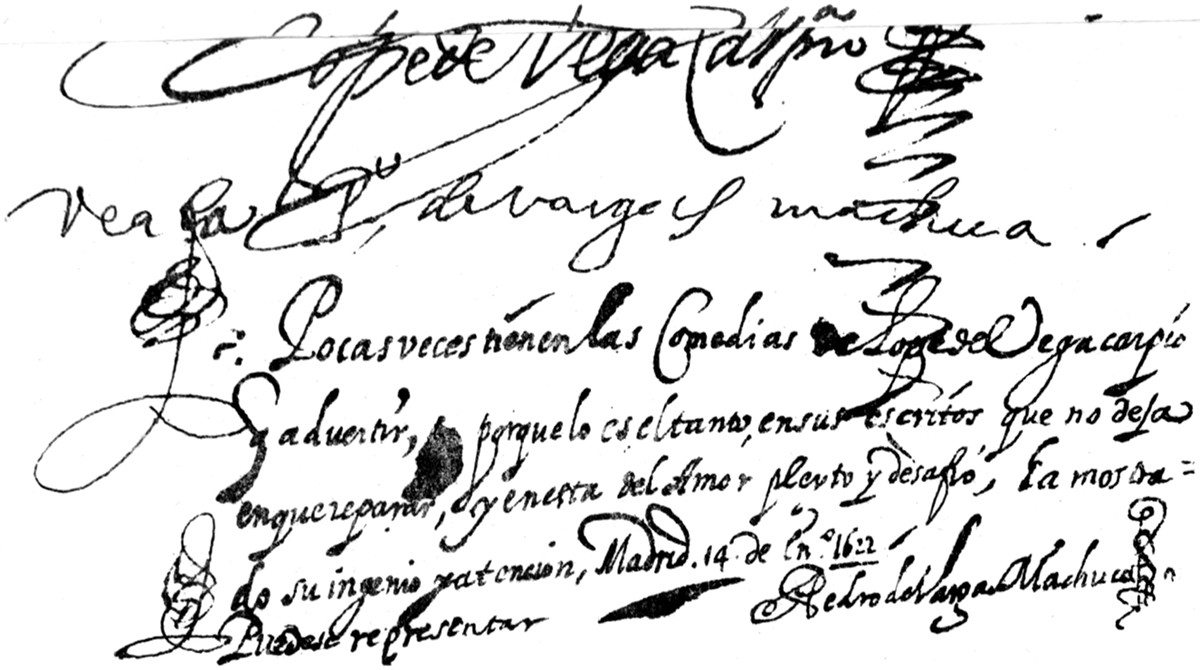 Lope de Vega Carpio
Vea la Pº de vargas machuca
Pocas veces tienen las Comedias de Lope de Vega carpio
q advertir, porque lo es el tanto, en sus escritos que no deja
en que reparar, y en esta del Amor pleyto y desafio, ha mostra=
do su ingenio y atencion, Madrid. 14. de Enº. 1622
Puedese representar Pedro de Vargas Machuca